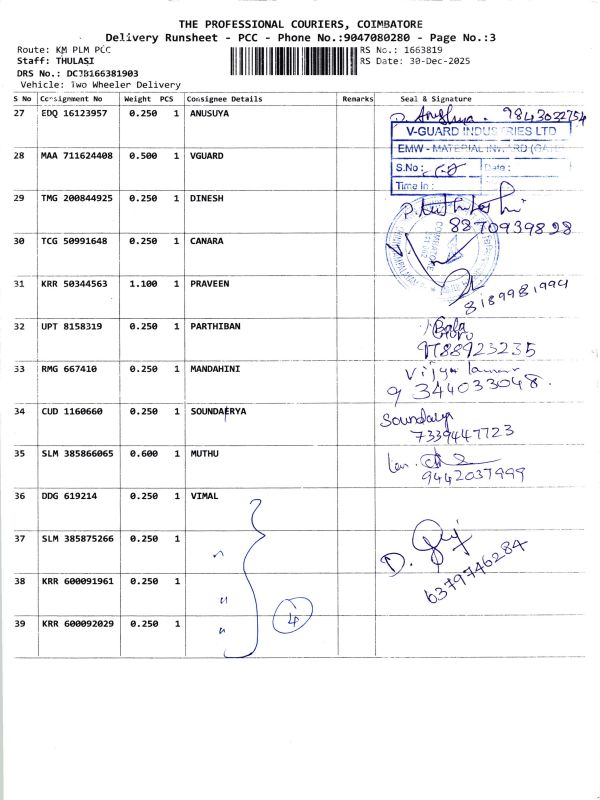 THE PROFESSIONAL COURIERS, COIMBATORE
Delivery Runsheet - PCC - Phone No.:9047080280 - Page No.:3
Route: KM PLM PCC RS No.: 1663819
Staff: THULASI RS Date: 30-Dec-2025
DRS No.: DCJB166381903
Vehicle: Two Wheeler Delivery
S No Consignment No Weight PCS Consignee Details Remarks Seal & Signature
27 EDQ 16123957 0.250 1 ANUSUYA 9843032754
V-GUARD INDUSTRIES LTD
EMW - MATERIAL INWARD (GATE)
28 MAA 711624408 0.500 1 VGUARD
S.No : Date :
Time In :
29 TMG 200844925 0.250 1 DINESH
8870939828
30 TCG 50991648 0.250 1 CANARA
COIMBATORE
31 KRR 50344563 1.100 1 PRAVEEN 8189981994
32 UPT 8158319 0.250 1 PARTHIBAN Bala Guru
9788923235
33 RMG 667410 0.250 1 MANDAHINI
9344033048.
34 CUD 1160660 0.250 1 SOUNDAERYA Soundarya
7339447723
35 SLM 385866065 0.600 1 MUTHU
9442037999
36 DDG 619214 0.250 1 VIMAL
37 SLM 385875266 0.250 1 "
D.
6379746284
38 KRR 600091961 0.250 1 "
39 KRR 600092029 0.250 1 " 4